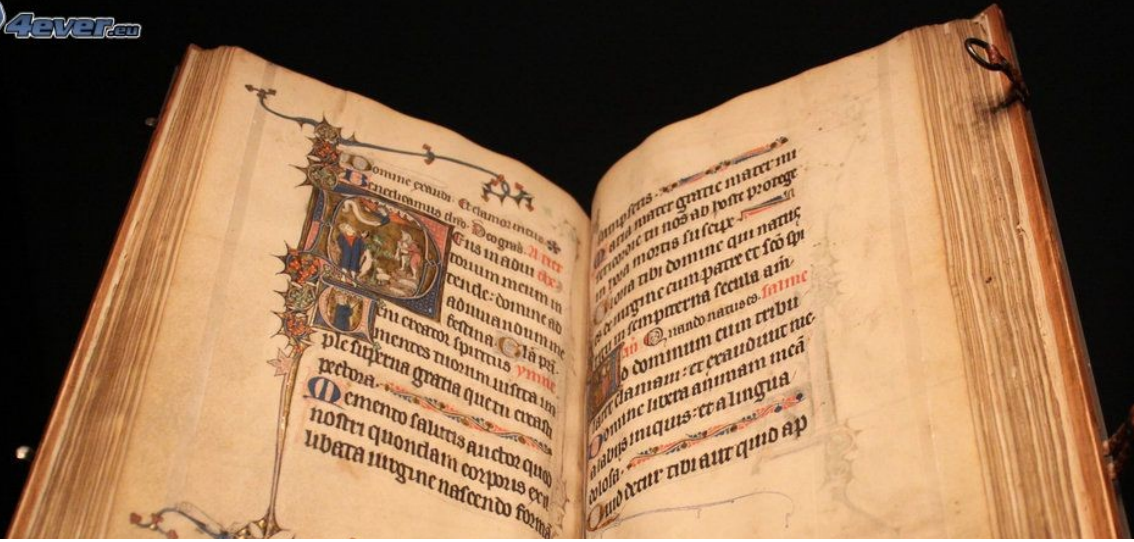 4ever.eu
Domine exaudi. Et clamor meus
Benedicamus dño. Deo gras. A tier
Eus in adiu
torium meum in
tende: domine ad
adiuuandum me
festina. Gla pa
eni creator spiritus ymne
mentes tuorum uisita im
ple superna gratia que tu creasti
pectora.
Memento salutis auctor quod
nostri quondam corporis ex il
libata uirgine nascendo formã
sumpseris.
aria mater gratie mater mi
sericordie tu nos ab hoste protege
in hora mortis suscipe.
loria tibi domine qui natus
es de uirgine cum patre et sco spi
ritu in sempiterna secula am̃.
Quando natus es. salme
d dominum cum tribu
larer clamaui: et exaudiuit me.
Domine libera animam meã
a labijs iniquis: et a lingua
dolosa.
Quid detur tibi aut quid ap